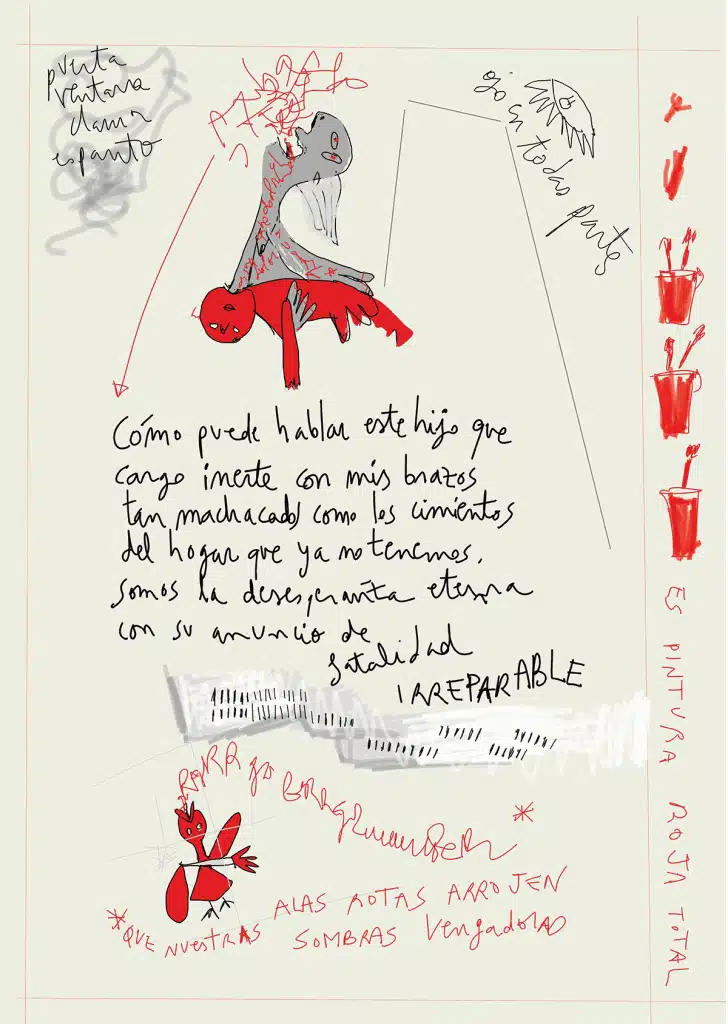 puerta
ventana
clamor
espanto
ojo en todas partes
Cómo puede hablar este hijo que
cargo inerte con mis brazos
tan machacados como los cimientos
del hogar que ya no tenemos.
somos la desesperanza eterna
con su anuncio de
fatalidad
IRREPARABLE
*
*QUE NUESTRAS ALAS ROTAS ARROJEN
SOMBRAS Vengadoras
ES PINTURA ROJA TOTAL